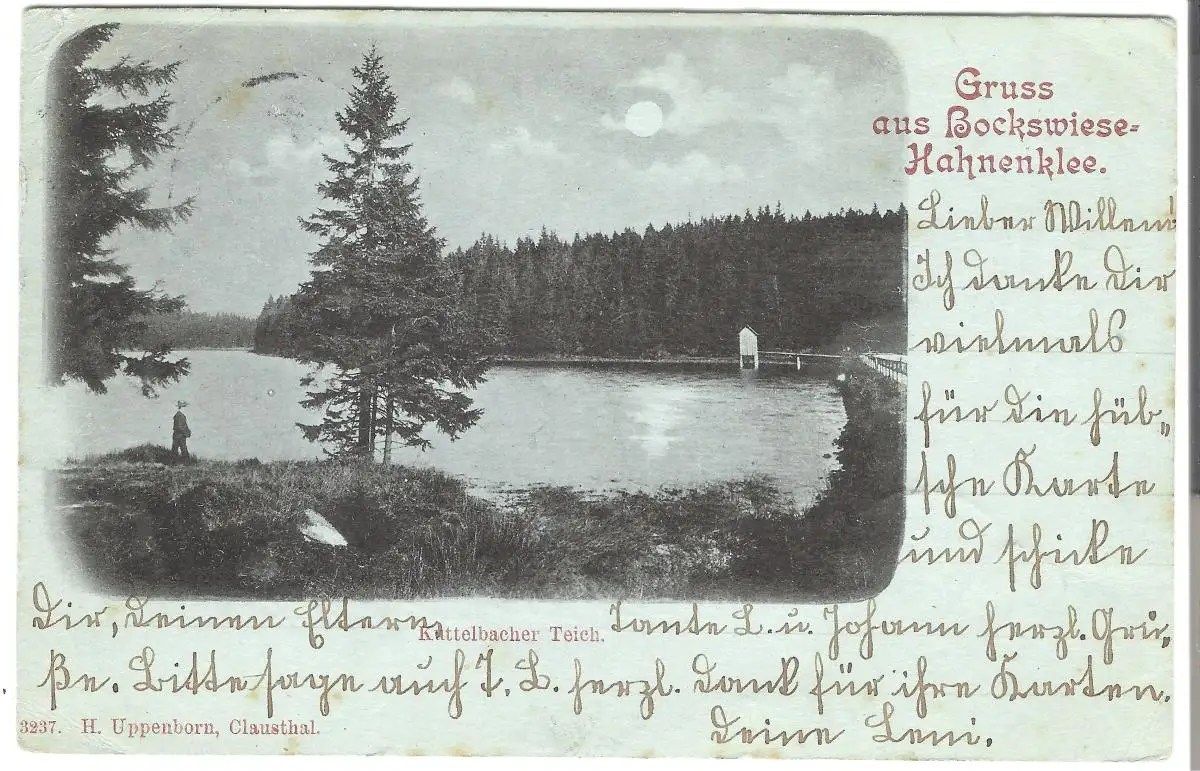 Gruss
aus Bockswiese-
Hahnenklee.
Lieber Willem!
Ich danke Dir
vielmals
für die hüb-
sche Karte
und schicke
Dir, Deinen Eltern,
Tante L. u. Johann herzl. Grü-
ße. Bitte sage auch T. L. herzl. Dank für ihre Karten.
Deine Leni.
Kuttelbacher Teich.
3237. H. Uppenborn, Clausthal.